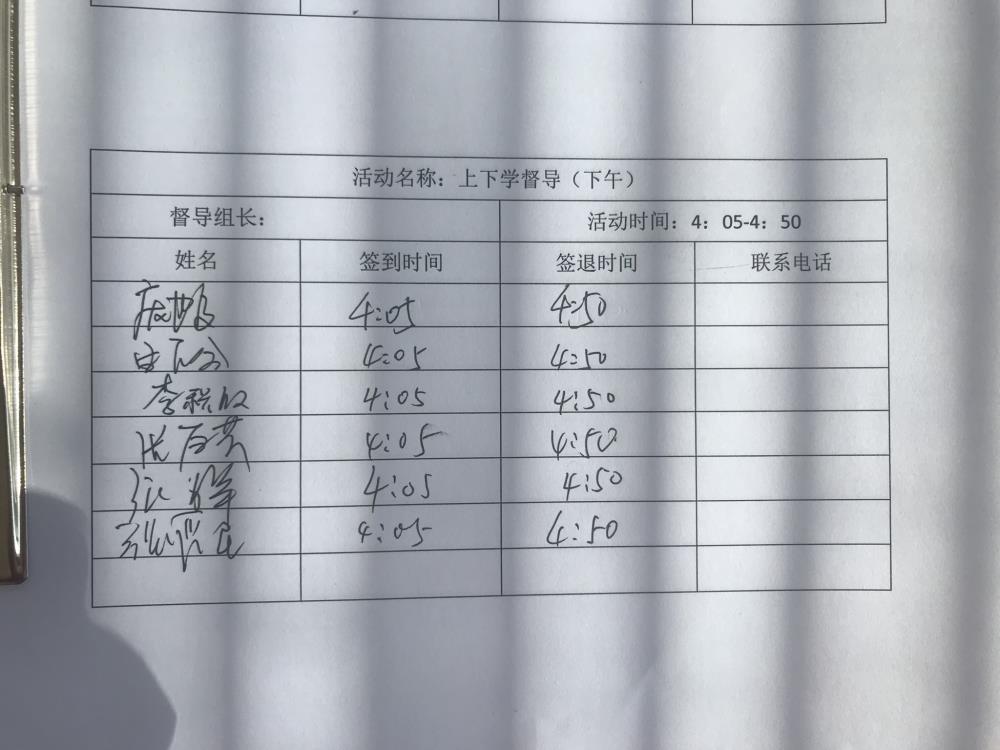 活动名称：上下学督导（下午）
督导组长： 活动时间：4：05-4：50
姓名 签到时间 签退时间 联系电话
4:05 4:50
4:05 4:50
李 4:05 4:50
4:05 4:50
4:05 4:50
4:05 4:50